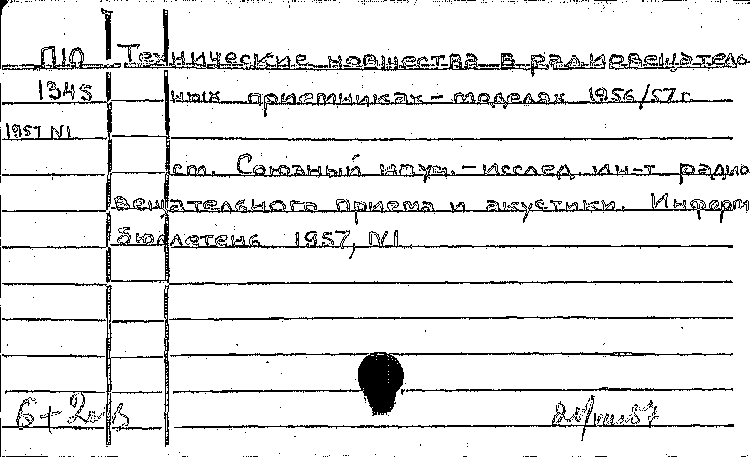 П10 Технические новшества в радиовещатель
1343 ных приемниках – моделях 1956/57 г.
1957 N1
ст. Союзный науч. – исслед. ин-т радио
вещательного приема и акустики. Информ
бюллетень 1957, N1.